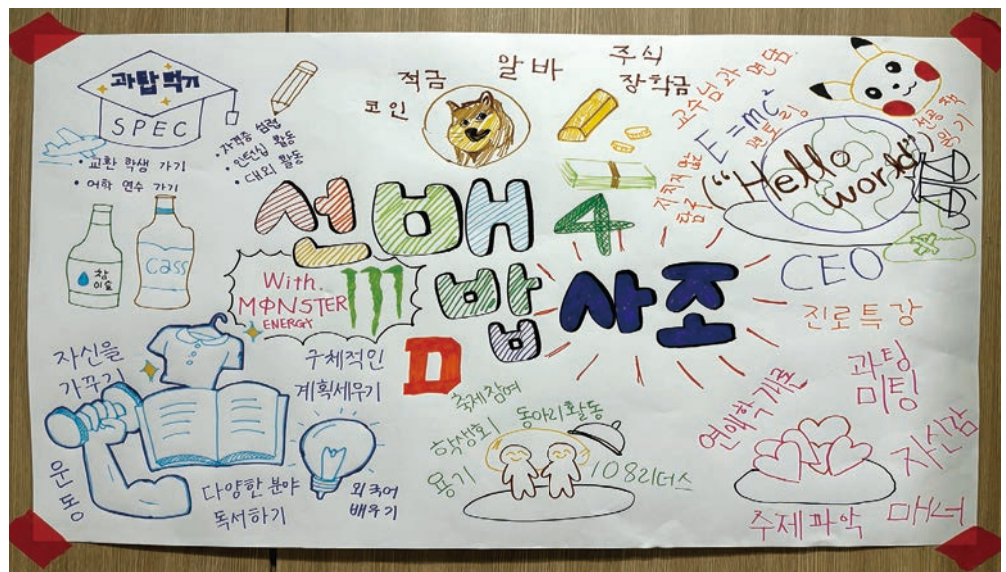 과탑 먹기
SPEC
• 교환 학생 가기
• 어학 연수 가기
• 자격증 섭렵
• 인턴십 활동
• 대외 활동
적금
알바
주식
코인
장학금
교수님과 면담
E=mc²
멘토링
지치지 않는
탐구
("Hello
world")
전공 책
읽기
선배 4
밥 사조
D
With.
MONSTER
ENERGY
참
이슬
Cass
CEO
진로특강
자신을
가꾸기
운동
구체적인
계획세우기
다양한 분야
독서하기
외국어
배우기
축제참여
학생회
동아리활동
용기
108리더스
연애학개론
과팅
미팅
자신감
주제파악
매너